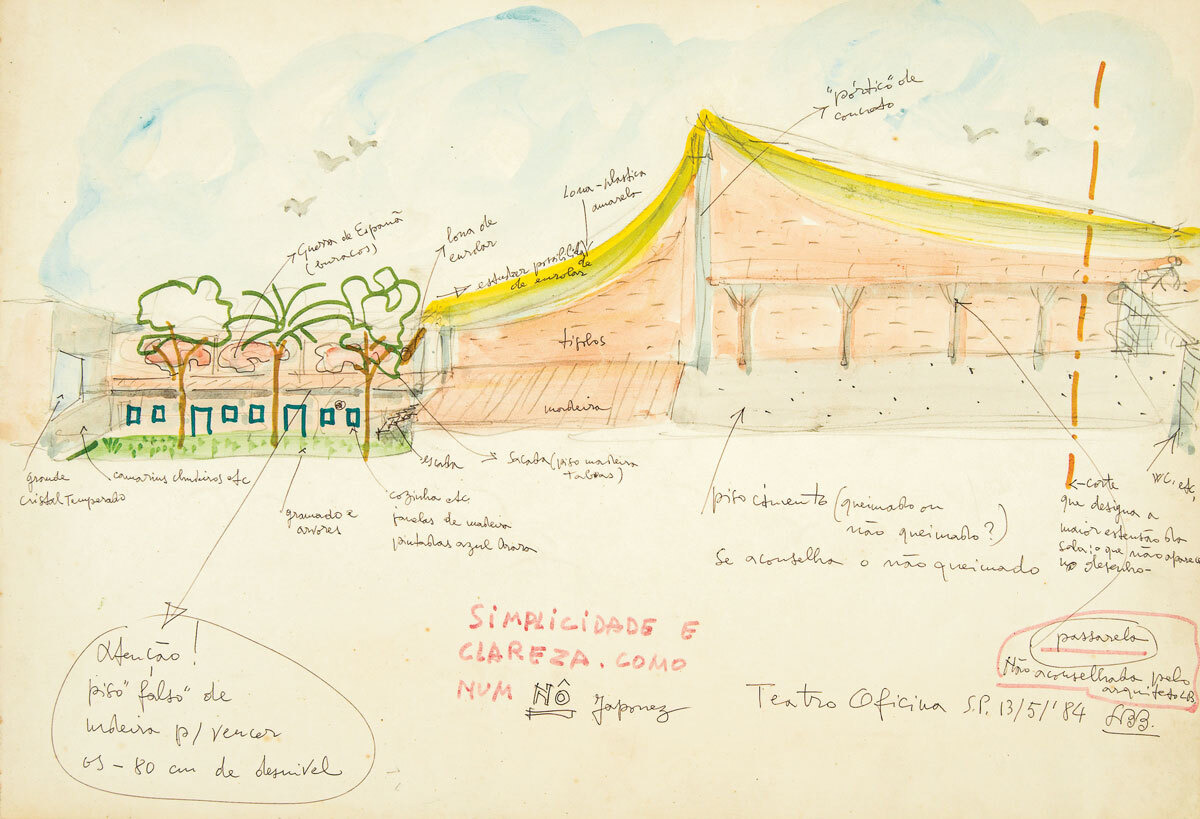 "pórtico" de
concreto
Lona-plastica
amarela
Guerra de Espanã
(buracos)
lona de
enrolar
estudar possibilid.
de enrolar
tijolos
madeira
grande
cristal temperado
camarins chuveiros etc
gramado e
arvores
escada
sacada (piso madeira
taboas)
cozinha etc
janelas de madeira
pintadas azul Arara
piso cimento (queimado ou
não queimado?)
Se aconselha o não queimado
WC, etc,
corte
que designa a
maior extensão da
sala; o que não aparece
no desenho-
Atenção!
piso "falso" de
madeira p/ vencer
os - 80 cm de desnivel
SIMPLICIDADE E
CLAREZA. COMO
NUM NÔ Japonez
passarela
Não aconselhada pelo
arquiteto LB.
Teatro Oficina S.P. 13/5/'84 LBB.